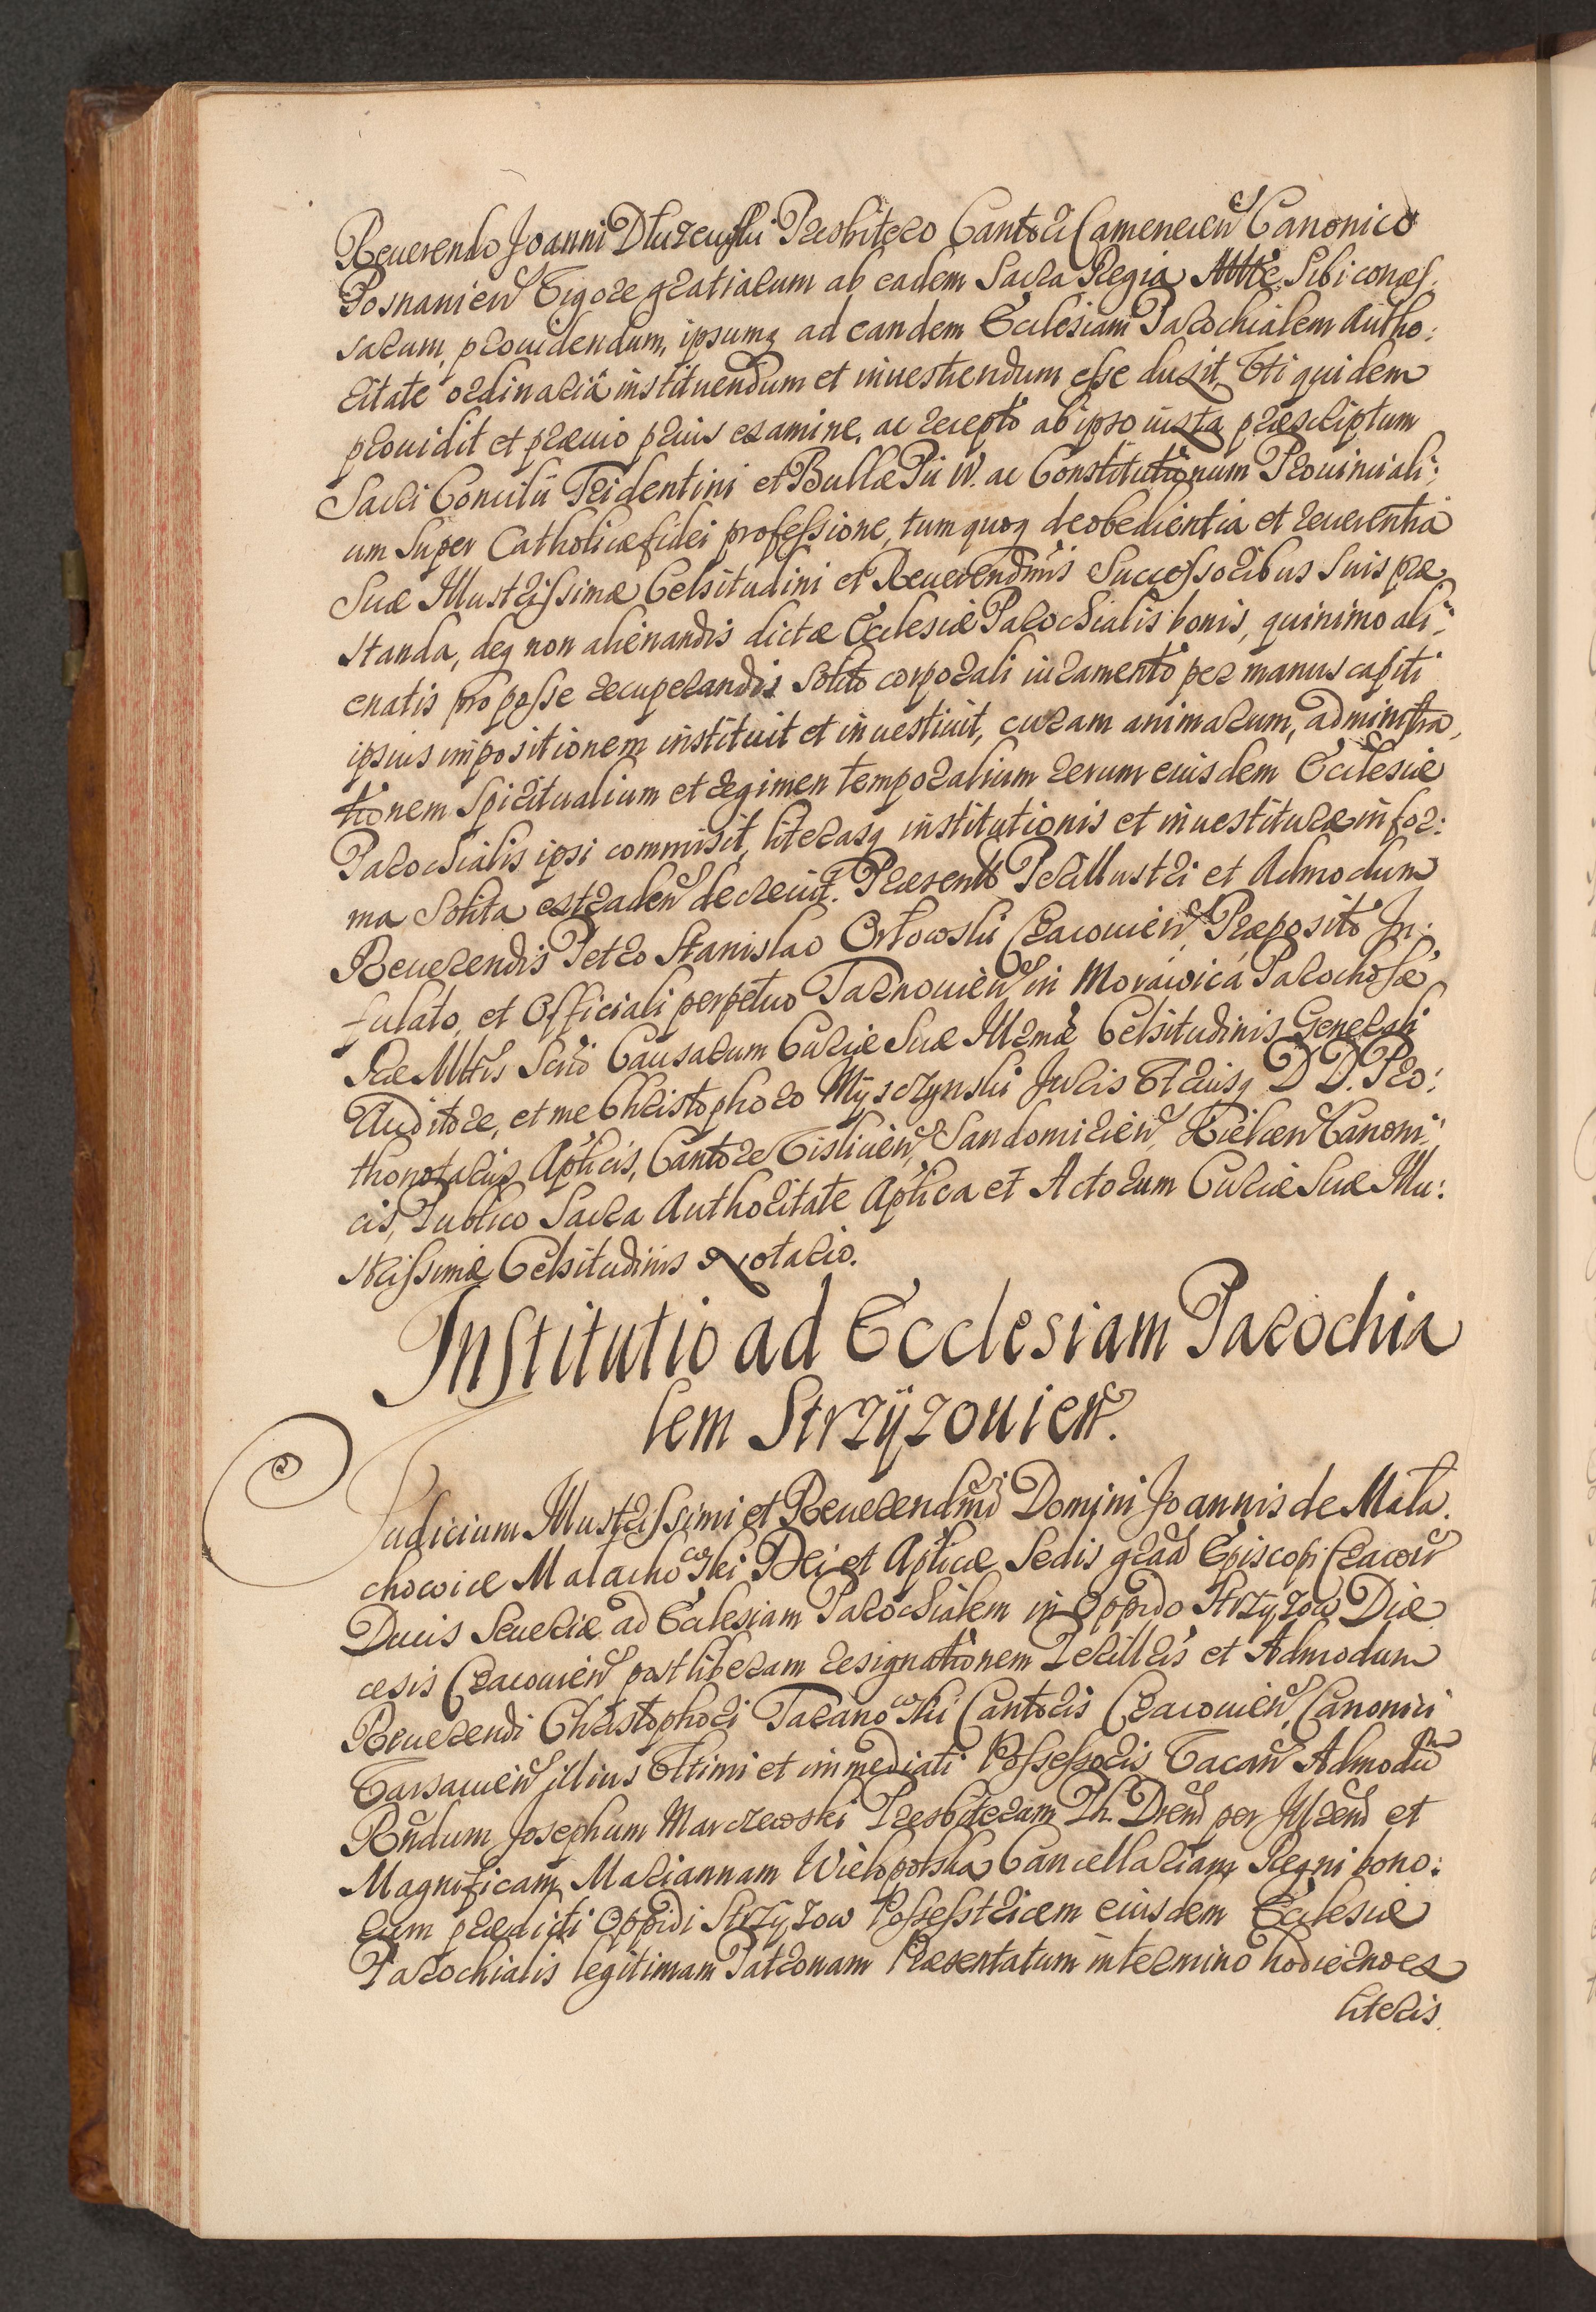 Reuerendo Joanni Dłuzewski Presbitero Cantori Camenecen Canonico
Posnanien Vigore gratiarum ab eadem Sacra Regia Mtte Sibi conces:
sarum, prouidendum, ipsumq ad eandem Ecclesiam Parochialem Autho:
ritate ordinariâ instituendum et inuestiendum esse duxit, Vti quidem
prouidit et præuio prius examine, ac recepto ab ipso iuxta præscriptum
Sacri Concilii Tridentini et Bullæ Pii IV. ac Constitutionum Prouinciali:
um Super Catholicæ fidei professione, tum quoq de obedientia et reuerentia
Suæ Illustrissimæ Celsitudini et Reuerendmis Successoribus Suis præ
standa, deq non alienandis dictæ Ecclesiæ Parochialis bonis, quinimo ali:
enatis pro posse recuperandis Solito corporali iuramento per manus capiti
ipsius impositionem instituit et inuestiuit, curam animarum, administra,
tionem Spiritualium et regimen temporalium rerum eiusdem Ecclesiæ
Parochialis ipsi commisit, literasq institutionis et inuestituræ in for:
ma Solita extraden decreuit. Præsentib Perillustri et Admodum
Reuerendis Petro Stanislao Orłowski Cracouien, Præposito In:
fulato, et Officiali perpetuo Tarnouien in Morawica Parocho Sæ
Ræ Mttis Scrio Causarum Curiæ Suæ Illrmæ Celsitudinis Generali
Auditore, et me Christophoro Mysczynski Juris Vtriusq D D. Pro:
thonotariis Aplicis, Cantore Vislicien, Sandomirien, Kielcen Canoni:
cis, Publico Sacra Authoritate Aplica et Actorum Curiæ Suæ Illu:
strissimæ Celsitudinis Notario.
Institutio ad Ecclesiam Parochia
lem Strzÿzouien.
Judicium Illustrissimi et Reuerendmi Domini Joannis de Mała.
chowice Małachowski Dei et Aplicæ Sedis graa Episcopi Cracoun
Ducis Seueriæ ad Ecclesiam Parochialem in Oppido Strzyzow Diæ
cesis Cracouien post liberam resignationem Perillris et Admodum
Reuerendi Christophori Taranowski Cantoris Cracouien, Canonici
Varsauien illius Vltimi et immediati Possessoris Vacan Admodum
Rndum Josephum Marczewski Presbiterum Th. Drem per Illrem et
Magnificam Mariannam Wielopolska Cancellariam Regni bono:
rum prædicti Oppidi Strzyzow Possestricem eiusdem Ecclesiæ
Parochialis legitimam Patronam Præsentatum in termino hodierno ex
literis.